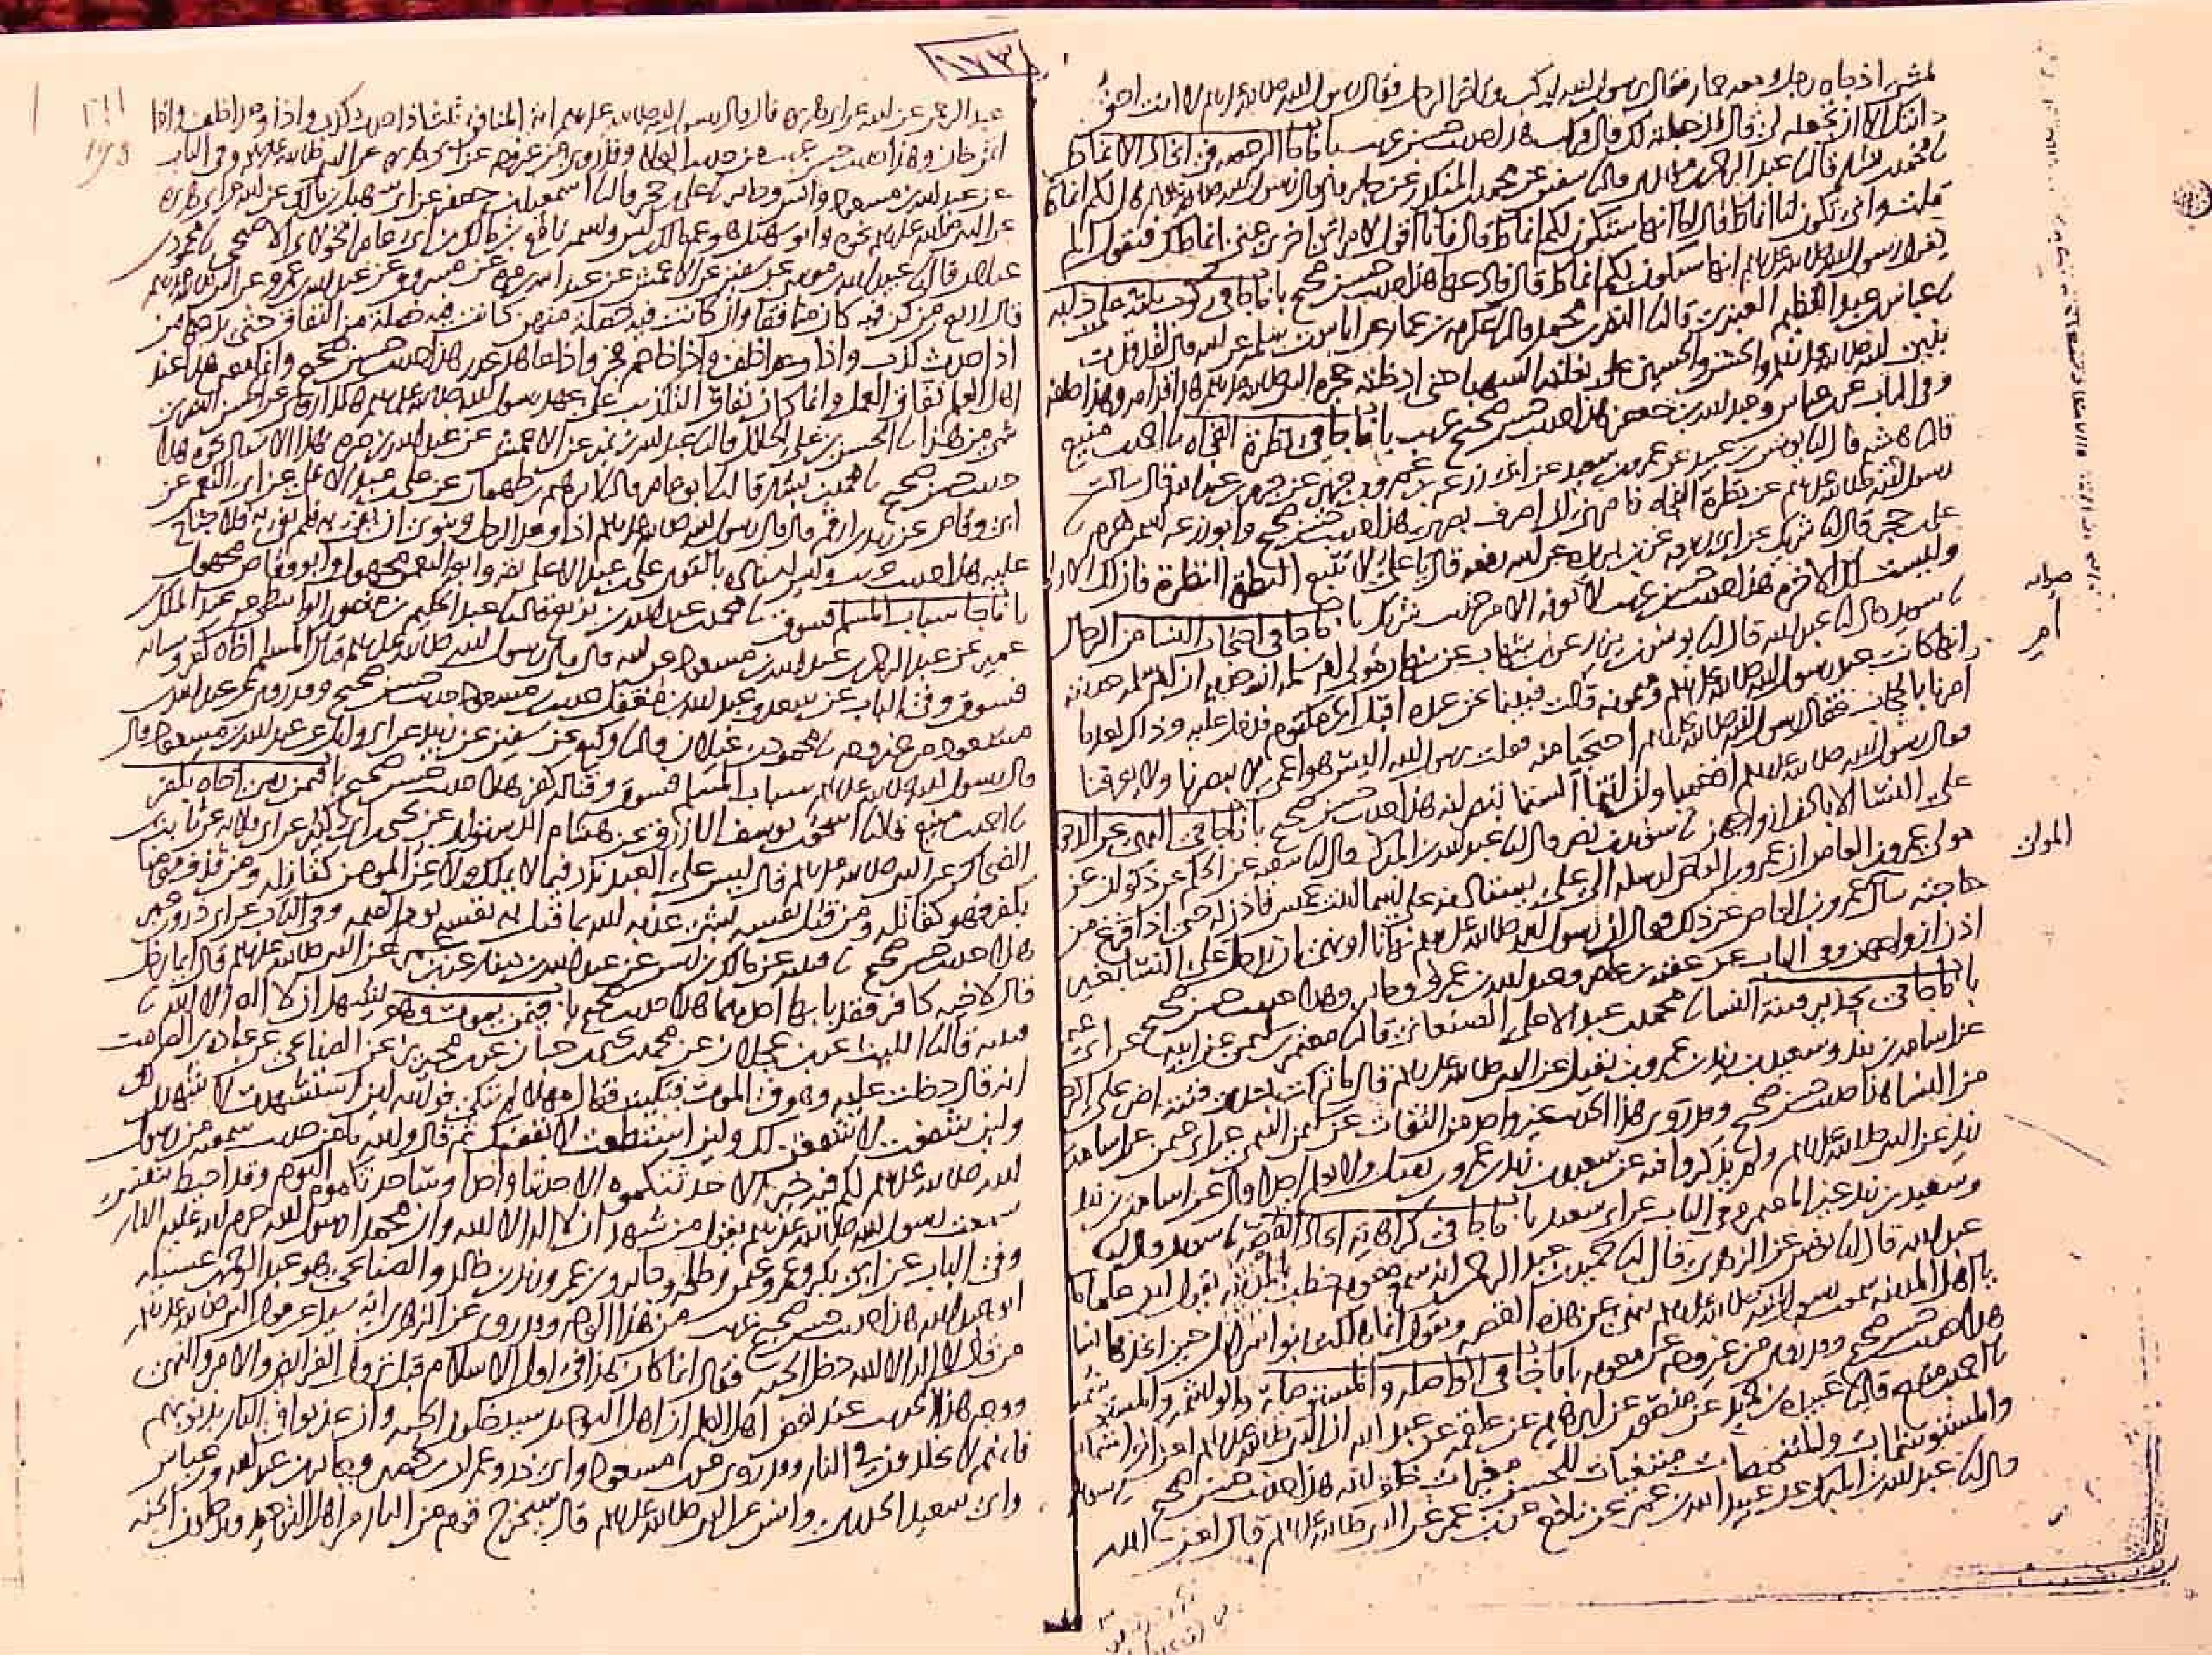 يمشي اذ جاه رجل ومعه حمار فقال يرسول الله اركب وتاخر الرجل فقال رسول الله صلى الله عليه وسلم لا انت احق
دابتك الا ان تجعله لي قال قد جعلته لك قال فركب هذا حديث حسن غريب باب ما جا في الرخصه في اتخاذ الانماط
محمد بن بشار قال نا عبد الرحمن بن مهدي قال نا سفين عن محمد بن المنكدر عن جابر قال قال رسول الله صلى الله عليه وسلم هل لكم انماط
قلت وانى تكون لنا انماط قال اما انها ستكون لكم انماط قال فانا اقول لامراتي اخري عني انماطك فتقول الم
يقل رسول الله صلى الله عليه وسلم انها ستكون لكم انماط قال فادعها هذا حديث حسن صحيح باب ما جا في ركوب ثلثة على دابه
نا عباس بن عبد العظيم العنبري قال نا النضر بن محمد قال نا عكرمه بن عمار عن اياس بن سلمه عن ابيه قال لقد قدت
نبي الله صلى الله عليه وسلم والحسن والحسين على بغلته الشهبا حتى ادخلته حجره النبي صلى الله عليه وسلم هذا قدامه وهذا خلفه
وفي الباب عن ابن عباس وعبد الله بن جعفر هذا حديث حسن صحيح غريب باب ما جا في نظرة الفجاه نا احمد بن منيع
قال نا هشيم قال نا يونس بن عبيد عن عمرو بن سعيد عن ابي زرعه بن عمرو بن جرير عن جرير بن عبد الله قال سالت
رسول الله صلى الله عليه وسلم عن نظرة الفجاه فامرني ان اصرف بصري هذا حديث حسن صحيح وابو زرعه اسمه هرم نا
علي بن حجر قال نا شريك عن ابي ربيعه عن ابن بريده عن ابيه رفعه قال يا علي لا تتبع النظرة النظرة فان لك الاولى
وليست لك الاخره هذا حديث حسن غريب لا نعرفه الا من حديث شريك باب ما جا في احتجاب النسا من الرجال
نا سويد قال نا عبد الله قال نا يونس بن يزيد عن ابن شهاب عن نبهان مولى ام سلمه انه حدثه ان ام سلمه حدثته
انها كانت عند رسول الله صلى الله عليه وسلم وميمونه قالت فبينا نحن عنده اقبل ابن ام مكتوم فدخل عليه وذلك بعد ما
امرنا بالحجاب فقال رسول الله صلى الله عليه وسلم احتجبا منه فقلت يرسول الله اليس هو اعمى لا يبصرنا ولا يعرفنا
فقال رسول الله صلى الله عليه وسلم افعمياوان انتما الستما تبصرانه هذا حديث حسن صحيح باب ما جا في النهي عن الدخول
على النسا الا باذن ازواجهن نا سويد بن نصر قال نا عبد الله بن المبارك قال نا شعبه عن الحكم عن ذكوان عن
مولى عمرو بن العاص ان عمرو بن العاص ارسله الى علي يستاذنه على اسما بنت عميس فاذن له حتى اذا فرغ من
حاجته سال عمرو بن العاص عن ذلك فقال ان رسول الله صلى الله عليه وسلم نهانا او نهى ان ندخل على النسا بغير
اذن ازواجهن وفي الباب عن عقبه بن عامر وعبد الله بن عمرو وجابر وهذا حديث حسن صحيح
باب ما جا في تحذير فتنة النسا نا محمد بن عبد الاعلى الصنعاني قال نا معتمر بن سليمن عن ابيه عن ابي عثمن
عن اسامه بن زيد وسعيد بن زيد بن عمرو بن نفيل عن النبي صلى الله عليه وسلم قال ما تركت بعدي فتنه اضر على الرجال
من النسا هذا حديث حسن صحيح وقد روى هذا الحديث غير واحد من الثقات عن سليمن التيمي عن ابي عثمن عن اسامه بن
زيد عن النبي صلى الله عليه وسلم ولم يذكروا فيه عن سعيد بن زيد بن عمرو بن نفيل ولا نعلم احدا قال عن اسامه بن زيد
وسعيد بن زيد غير المعتمر وفي الباب عن ابي سعيد باب ما جا في كراهية اتخاذ القصه نا سويد قال نا
عبد الله قال نا يونس عن الزهري قال نا حميد بن عبد الرحمن انه سمع معويه خطب بالمدينه يقول اين علماوكم
يا اهل المدينه سمعت رسول الله صلى الله عليه وسلم ينهى عن هذه القصه ويقول انما هلكت بنوا اسرايل حين اتخذها نساوهم
هذا حديث حسن صحيح وقد روي من غير وجه عن معويه باب ما جا في الواصله والمستوصله والواشمه والمستوشمه
نا احمد بن منيع قال نا عبيده بن حميد عن منصور عن ابرهيم عن علقمه عن عبد الله ان النبي صلى الله عليه وسلم لعن الواشمات
والمستوشمات والمتنمصات مبتغيات للحسن مغيرات خلق الله هذا حديث حسن صحيح نا سويد
قال نا عبد الله بن المبارك عن عبيد الله بن عمر عن نافع عن ابن عمر عن النبي صلى الله عليه وسلم قال لعن الله
صوابه
امر
المولى
١٧٣
173
عبد الرحمن عن ابيه عن ابي هريره قال قال رسول الله صلى الله عليه وسلم اية المنافق ثلث اذا حدث كذب واذا وعد اخلف واذا
ايتمن خان وهذا حديث حسن غريب من حديث العلا وقد روي من غير وجه عن ابي هريره عن النبي صلى الله عليه وسلم وفي الباب
عن عبد الله بن مسعود وانس وجابر نا علي بن حجر قال نا اسمعيل بن جعفر عن ابي سهيل بن مالك عن ابيه عن ابي هريره
عن النبي صلى الله عليه وسلم نحوه وابو سهيل هو عم مالك بن انس واسمه نافع بن مالك بن ابي عامر الخولاني الاصبحي نا محمود بن
غيلان قال نا عبيد الله بن موسى عن سفين عن الاعمش عن عبد الله بن مره عن مسروق عن عبد الله بن عمرو عن النبي صلى الله عليه وسلم
قال اربع من كن فيه كان منافقا وان كانت فيه خصلة منهن كانت فيه خصلة من النفاق حتى يدعها من
اذا حدث كذب واذا وعد اخلف واذا خاصم فجر واذا عاهد غدر هذا حديث حسن صحيح وانما معنى هذا عند
اهل العلم نفاق العمل وانما كان نفاق التكذيب على عهد رسول الله صلى الله عليه وسلم هكذا روي عن الحسن البصري
شي من هذا نا الحسن بن علي الخلال قال نا عبد الله بن نمير عن الاعمش عن عبد الله بن مره بهذا الاسناد نحوه هذا
حديث حسن صحيح نا محمد بن بشار قال نا ابو عامر قال نا ابرهيم بن طهمان عن علي بن عبد الاعلى عن ابي النعمن عن
ابي وقاص عن زيد بن ارقم قال قال رسول الله صلى الله عليه وسلم اذا وعد الرجل وينوي ان يفي به فلم يف به فلا جناح
عليه هذا حديث غريب وليس اسناده بالقوي علي بن عبد الاعلى ثقه وابو النعمن مجهول وابو وقاص مجهول
باب ما جا سباب المسلم فسوق نا محمد بن عبد الله بن بزيع قال نا عبد الحكيم بن منصور الواسطي عن عبد الملك بن
عمير عن عبد الرحمن بن عبد الله بن مسعود عن ابيه قال قال رسول الله صلى الله عليه وسلم قتال المسلم اخاه كفر وسبابه
فسوق وفي الباب عن سعد وعبد الله بن مغفل حديث ابن مسعود حديث حسن صحيح وقد روي عن عبد الله بن
مسعود من غير وجه نا محمود بن غيلان قال نا وكيع عن سفين عن زبيد عن ابي وايل عن عبد الله بن مسعود قال
قال رسول الله صلى الله عليه وسلم سباب المسلم فسوق وقتاله كفر هذا حديث حسن صحيح باب فيمن رمى اخاه بكفر
نا احمد بن منيع قال نا اسحق بن يوسف الازرق عن هشام الدستوائي عن يحيى بن ابي كثير عن ابي قلابه عن ثابت بن
الضحاك عن النبي صلى الله عليه وسلم قال ليس على العبد نذر فيما لا يملك ولاعن المومن كقاتله ومن قذف مومنا
بكفر فهو كقاتله ومن قتل نفسه بشي عذبه الله بما قتل به نفسه يوم القيمه وفي الباب عن ابي ذر وابن عمر
هذا حديث حسن صحيح نا قتيبه عن مالك بن انس عن عبد الله بن دينار عن ابن عمر عن النبي صلى الله عليه وسلم قال ايما رجل
قال لاخيه كافر فقد با بها احدهما هذا حديث صحيح باب فيمن يموت وهو يشهد ان لا اله الا الله نا
قتيبه قال نا الليث عن ابن عجلان عن محمد بن يحيى بن حبان عن ابن محيريز عن الصنابحي عن عباده بن الصامت
انه قال دخلت عليه وهو في الموت فبكيت فقال مهلا لم تبكي فوالله لين استشهدت لاشهدن لك
ولين شفعت لاشفعن لك ولين استطعت لانفعنك ثم قال والله ما من حديث سمعته من رسول
الله صلى الله عليه وسلم لكم فيه خير الا حدثتكموه الا حديثا واحدا وساحدثكموه اليوم وقد احيط بنفسي
سمعت رسول الله صلى الله عليه وسلم يقول من شهد ان لا اله الا الله وان محمدا رسول الله حرم الله عليه النار
وفي الباب عن ابي بكر وعمر وعثمن وعلي وطلحه وجابر وابن عمر وزيد بن خالد والصنابحي هو عبد الرحمن بن عسيله
ابو عبد الله هذا حديث حسن صحيح غريب من هذا الوجه وقد روي عن الزهري انه سيل عن قول النبي صلى الله عليه وسلم
من قال لا اله الا الله دخل الجنه فقال انما كان هذا في اول الاسلام قبل نزول الفرايض والامر والنهي
ووجه هذا الحديث عند بعض اهل العلم ان اهل التوحيد سيدخلون الجنه وان عذبوا في النار بذنوبهم
فانهم لا يخلدون في النار وقد روي عن ابن مسعود وابي ذر وعمران بن حصين وجابر بن عبد الله وابن عباس
وابي سعيد الخدري وانس عن النبي صلى الله عليه وسلم قال سيخرج قوم من النار من اهل التوحيد ويدخلون الجنه